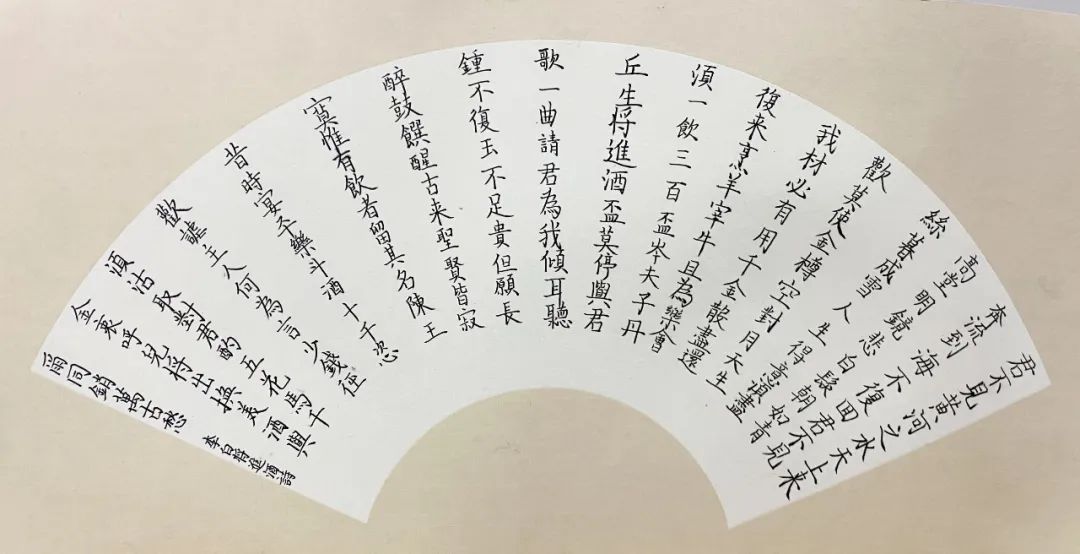 君不見黄河之水天上来
奔流到海不復回君不見
高堂明鏡悲白髮朝如青
絲暮成雪人生得意須盡
歡莫使金樽空對月天生
我材必有用千金散盡還
復来烹羊宰牛且為樂會
須一飲三百盃岑夫子丹
丘生將進酒盃莫停與君
歌一曲請君為我傾耳聽
鍾不復玉不足貴但願長
醉鼓饌醒古来聖賢皆寂
寞惟有飲者留其名陳王
昔時宴平樂斗酒十千恣
歡謔主人何為言少錢徑
須沽取對君酌五花馬千
金裘呼兒將出換美酒與
爾同銷萬古愁
李白將進酒詩